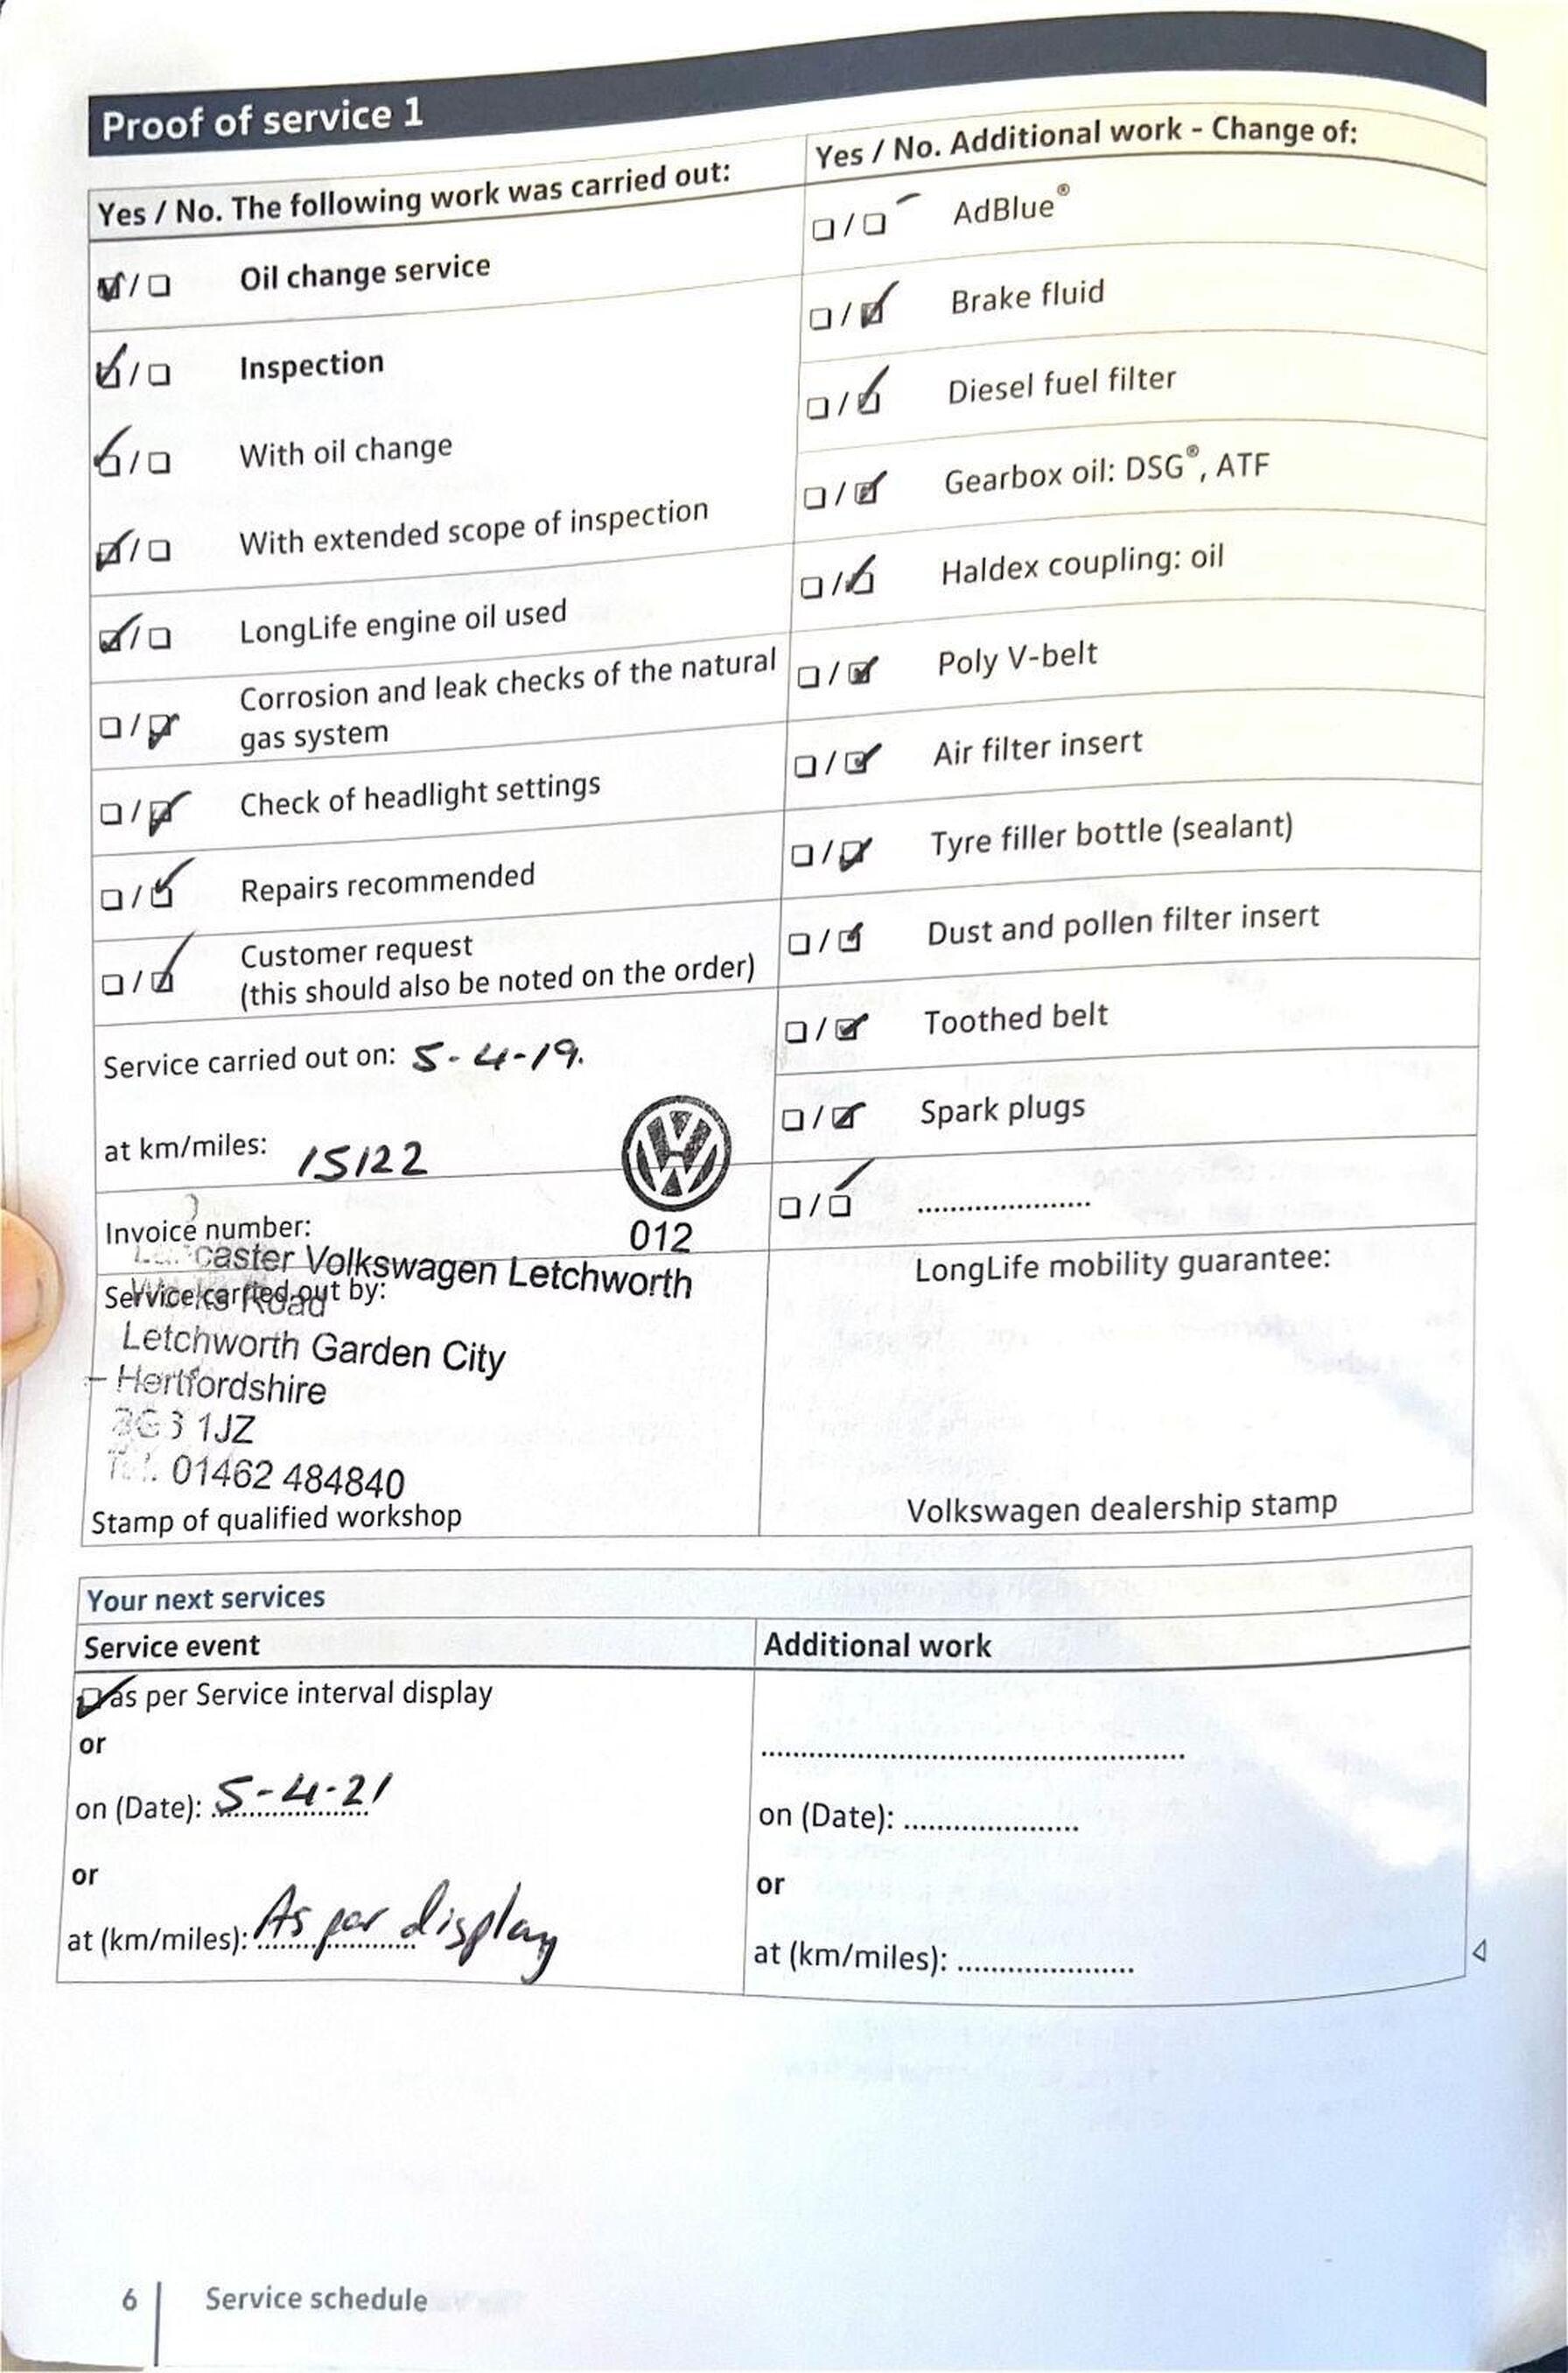 Proof of service 1
Yes / No. The following work was carried out:
Oil change service
Inspection
With oil change
With extended scope of inspection
LongLife engine oil used
Corrosion and leak checks of the natural
gas system
Check of headlight settings
Repairs recommended
Customer request
(this should also be noted on the order)
Service carried out on: 5-4-19.
at km/miles: 15122
012
Invoice number:
caster Volkswagen Letchworth
Service carried out by:
Works Road
Letchworth Garden City
Hertfordshire
SG3 1JZ
Tel. 01462 484840
Stamp of qualified workshop
Yes / No. Additional work - Change of:
AdBlue®
Brake fluid
Diesel fuel filter
Gearbox oil: DSG®, ATF
Haldex coupling: oil
Poly V-belt
Air filter insert
Tyre filler bottle (sealant)
Dust and pollen filter insert
Toothed belt
Spark plugs
.....................
LongLife mobility guarantee:
Volkswagen dealership stamp
Your next services
Service event
as per Service interval display
or
on (Date): 5-4-21
or
at (km/miles): As per display
Additional work
on (Date): .....................
or
at (km/miles): .....................
6 Service schedule